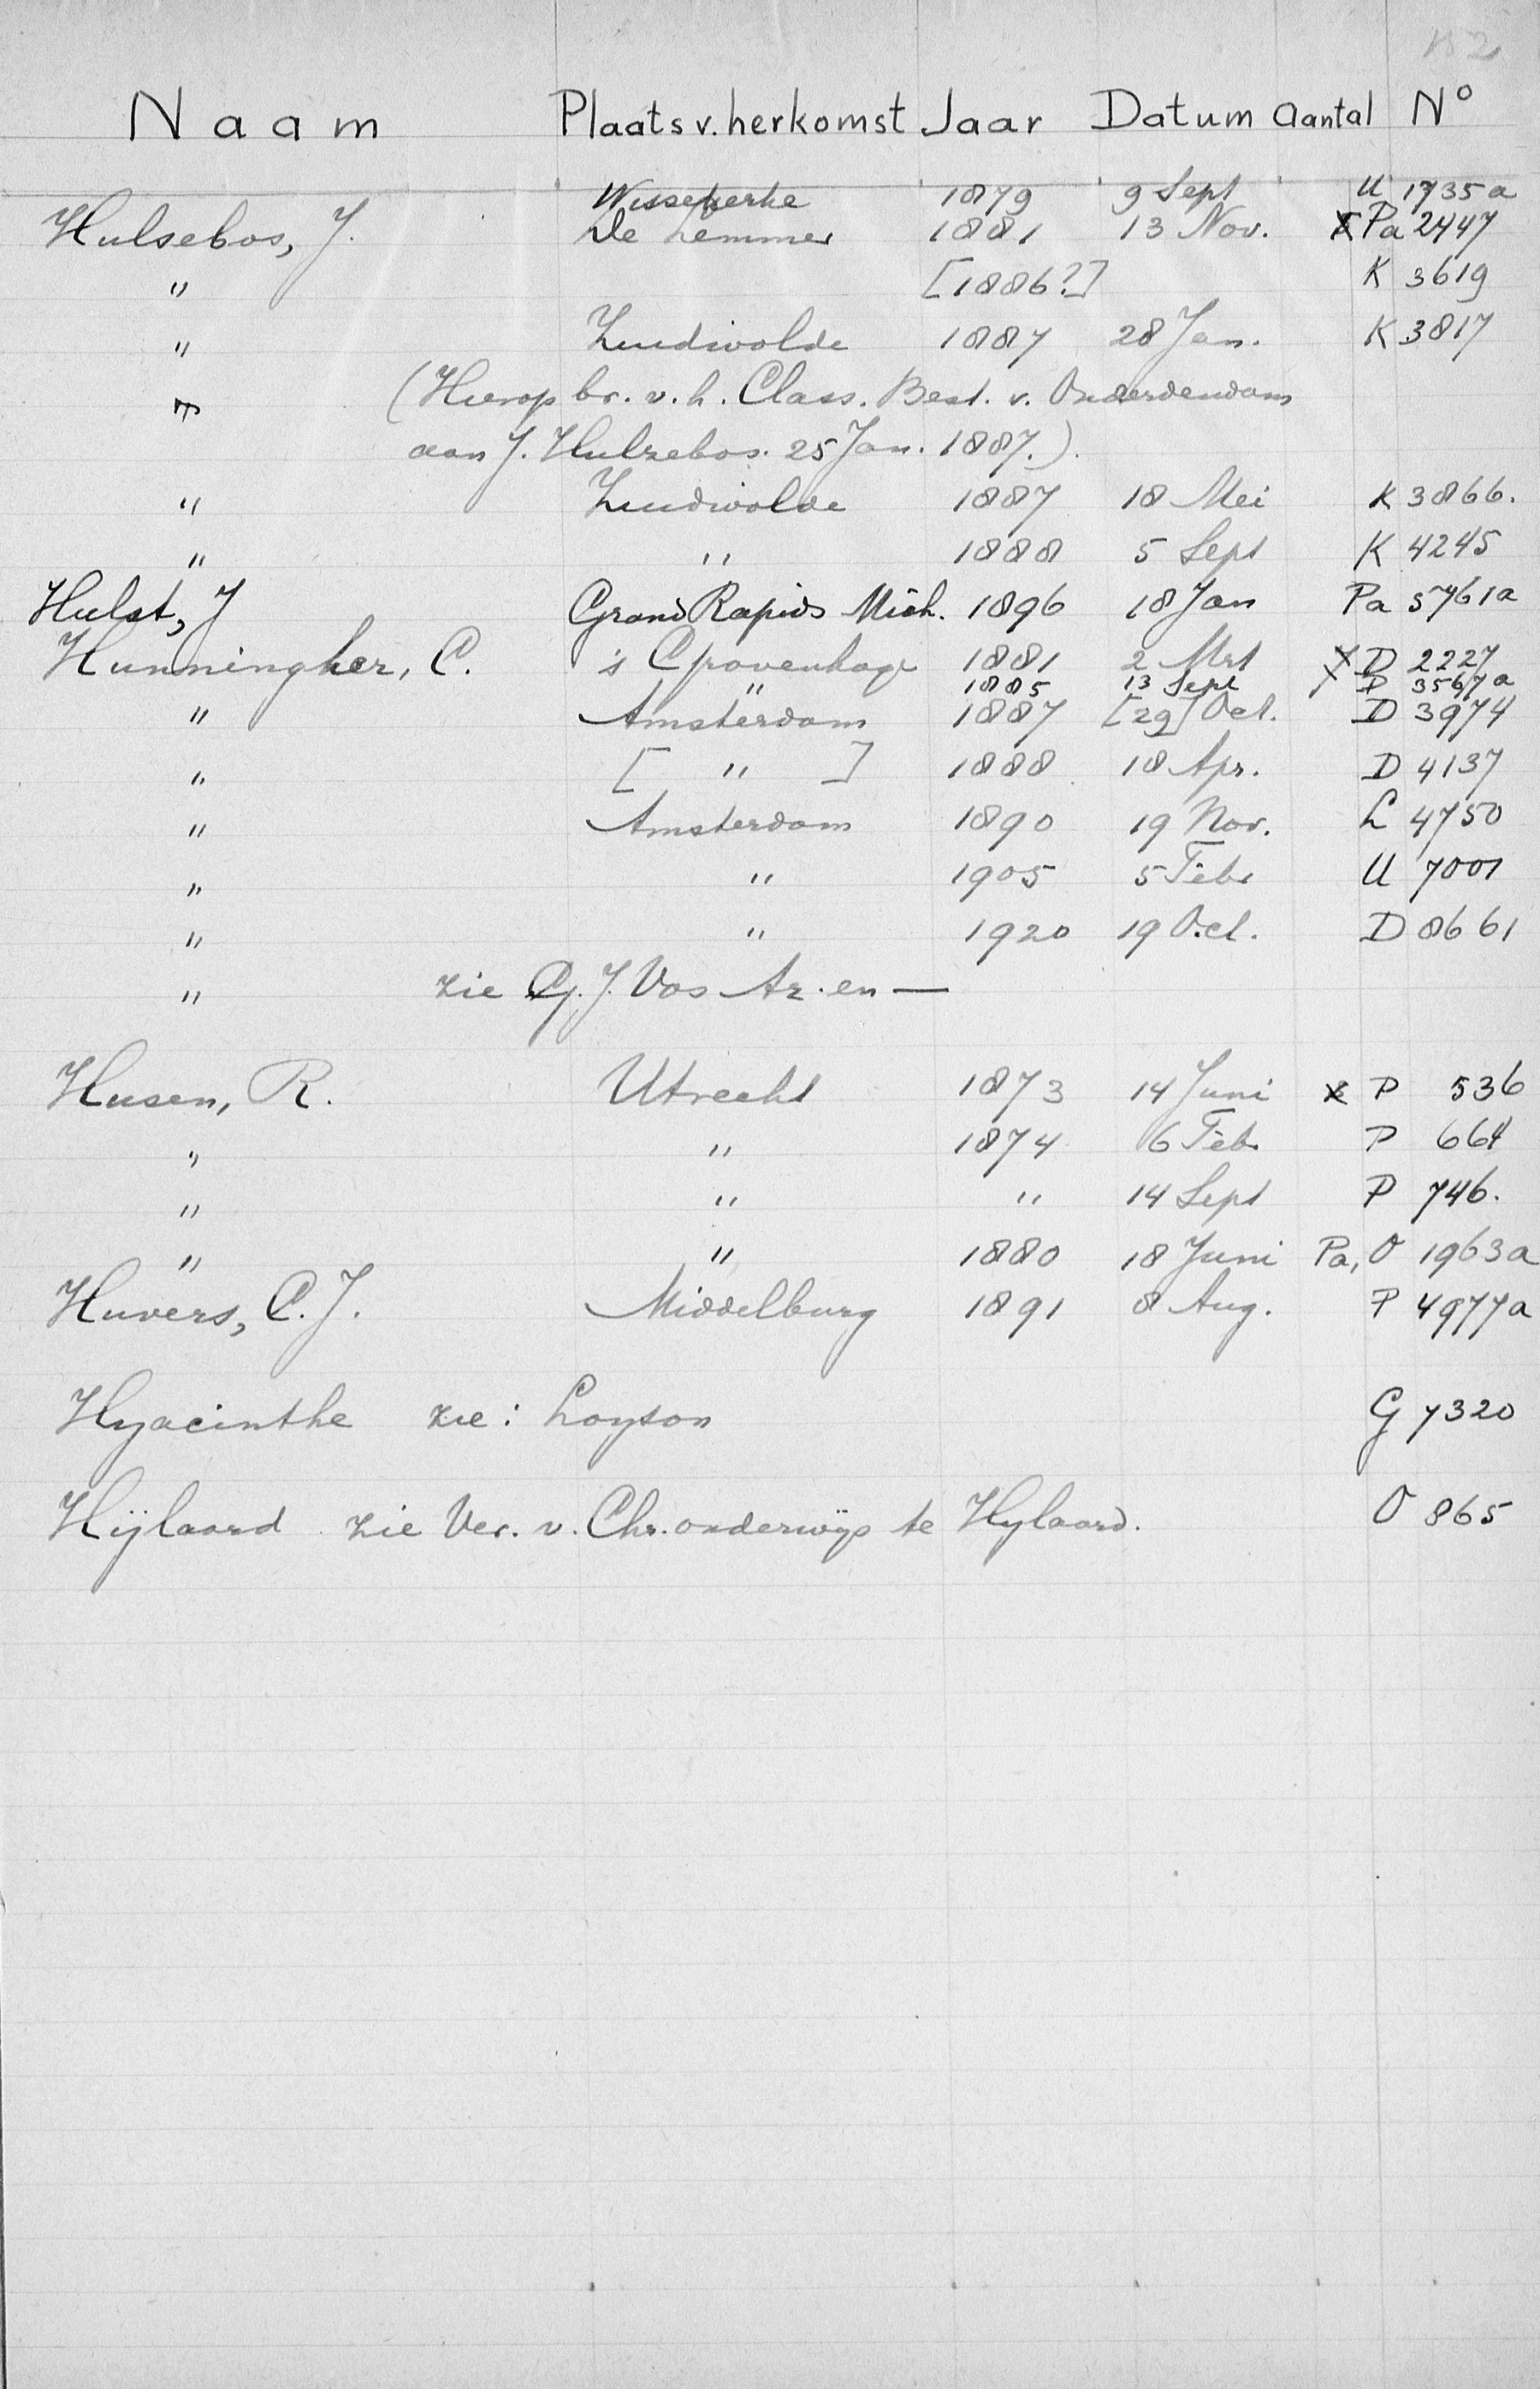 182
Naam Plaats v. herkomst Jaar Datum Aantal N°
Wissekerke 1879 9 Sept U 1735a
Hulsebos, J. De Lemmer 1881 13 Nov. X Pa 2447
" [1886?] K 3619
" Zuidwolde 1887 28 Jan. K 3817
" (Hierop br. v. h. Class. Best. v. Onderdendam
aan J. Hulzebos. 25 Jan. 1887.).
" Zuidwolde 1887 18 Mei K 3866.
" " 1888 5 Sept K 4245
Hulst, J Grand Rapids Mich. 1896 18 Jan Pa 5761a
Hunningher, C. 's Gravenhage 1881 2 Mrt X D 2227
" 1885 13 Sept X P 3567a
" Amsterdam 1887 [29] Oct. D 3974
" [ " ] 1888 18 Apr. D 4137
" Amsterdam 1890 19 Nov. L 4750
" " 1905 5 Febr U 7001
" " 1920 19 Oct. D 8661
" zie G. J. Vos Az. en —
Husen, R. Utrecht 1873 14 Juni X P 536
" " 1874 6 Feb. P 664
" " " 14 Sept P 746.
" " 1880 18 Juni Pa, O 1963a
Huvers, C. J. Middelburg 1891 8 Aug. P 4977a
Hyacinthe zie: Loyson G 7320
Hijlaard zie Ver. v. Chr. onderwijs te Hylaard. O 865